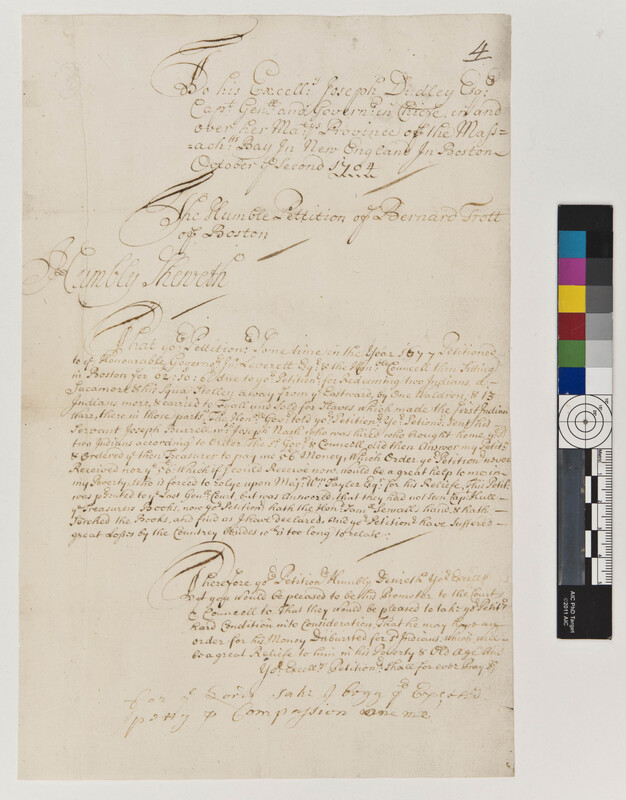 4
To his Excell.y Joseph Dudley Esq.r
Capt Gen.ll and Govern.r in Chiefe, in and
over her Ma.tys Province of the Mass=
=ach.tts Bay In New England In Boston
October y.e Second 1704
The Humble Petition of Bernard Trott
of Boston
Humbly Sheweth
That yo.r Petition.r Some time in the Year 1677 Petitioned
y.e Honourable Govern.r Jn.o Leverett Esq.r & the Hon.ble Councell then Sitting
in Boston for due to yo.r Petition.r for Redeeming two Indians, a
Sucamort & his Squa, Stolley away from y.e Eastward, by One Waldron, & 13
Indians more, & carried to Fyall and Sold for Slaves which made the first Indian
Warr, there in those parts. The Hon.ble Gov.r told yo.r Petition.r
Servant Joseph Burrell w.th Nash who was hired who brought home y.e
two Indians according to Order. The s.d Gov.r & Councell, did then Answer my Petit.n
& Ordered y.e then Treasurer to pay me 56 Money, Which Order yo.r Petition.r never
Received nor y.e 56 Which if I could Receive now, would be a great help to me in
my Poverty, Who is forced to relye upon Maj.r W.m Tayler Esq.r for his Reliefe, This Petit.n
was presented to y.e Last Gen.ll Court but was Answered that they had not seen Cap.t Hull
y.e Treasurers Books, now yo.r Petition.r hath the Hon.ble Sam.ll Sewalls hand & hath
Serched the Books, and find as I have declared. And yo.r Petition.r have Suffered
great losses by the Countrey besides w.ch is too long to relate:
Therefore yo.r Petition.r Humbly Desireth yo.r Excell.y
y.t you would be pleased to be his Promoter to the Court
& Councell to That they would be pleased to take yo.r Petit.rs
hard Condition into Consideration, that he may have any
order for his Money Disbursted for y.e Indians, which will
be a great Reliefe to him in his Poverty & Old Age And
Yo.r Excell.ys Petition.r Shall for ever Pray &c
For y.e Lords Sake I begg y.r
petty & Compassion one me